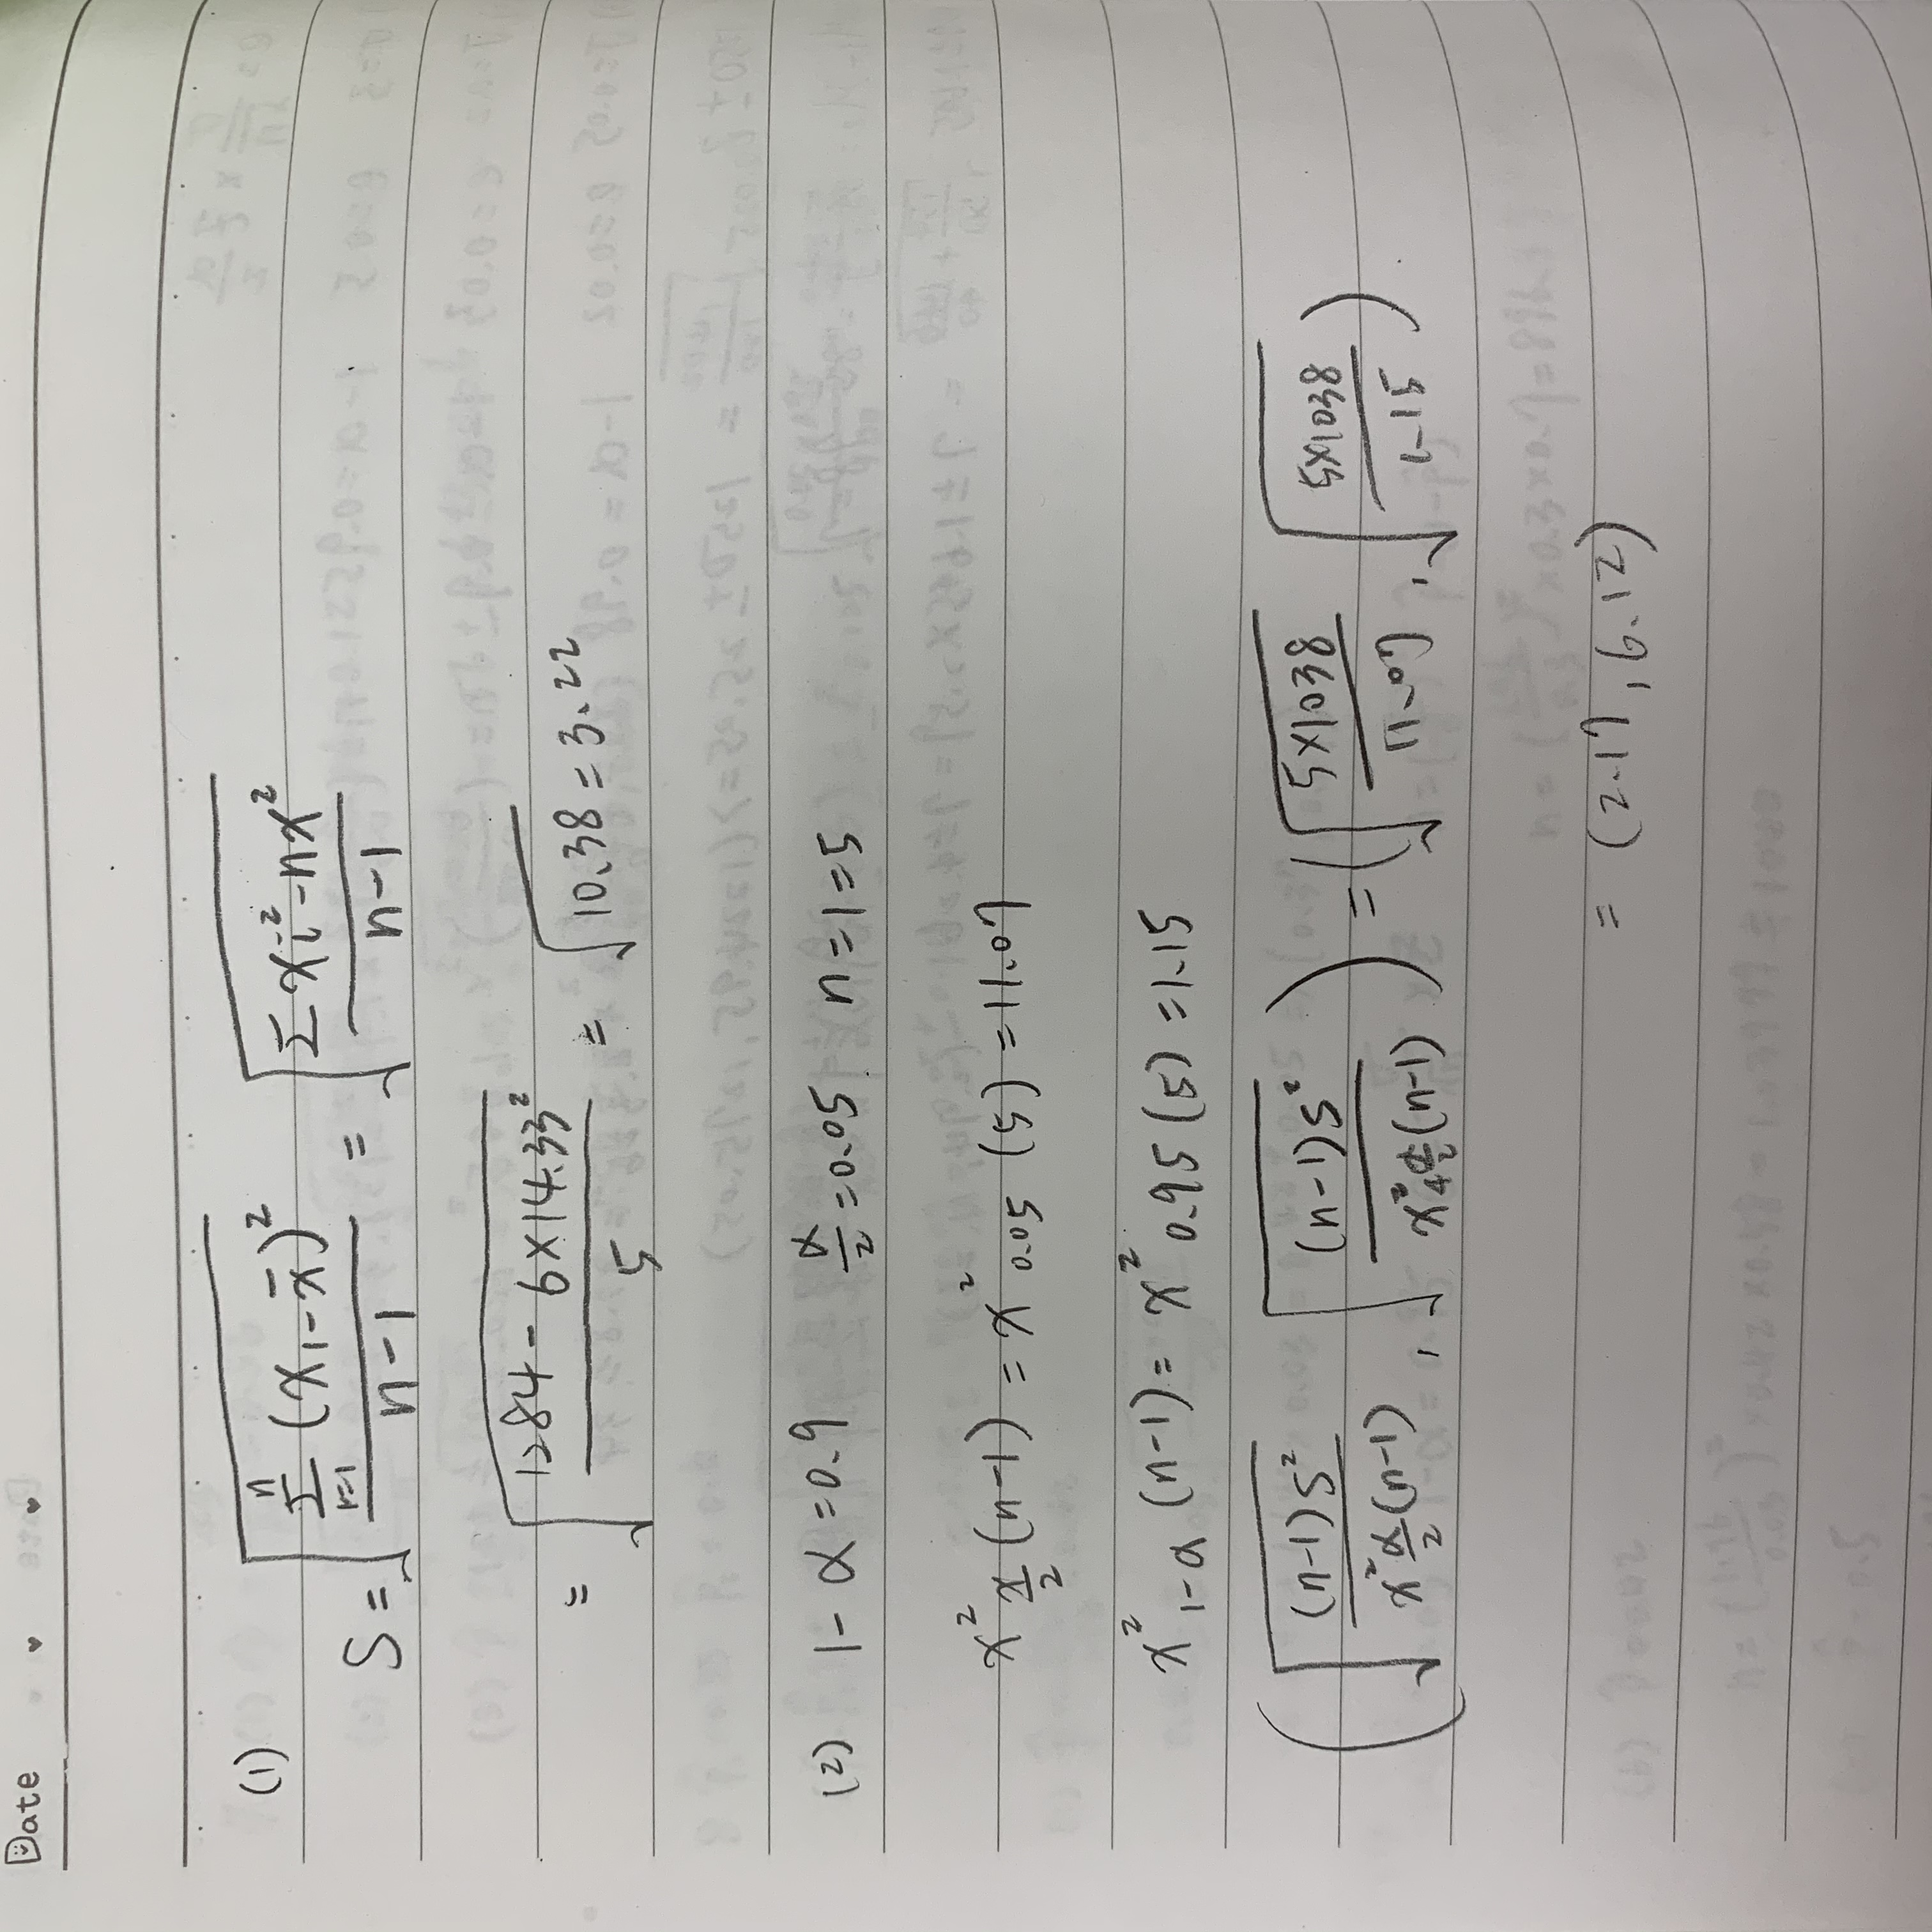 Date
(1) S = √(Σ_{i=1}^{n} (x₁ - x̄)² / (n-1)) = √((Σxi² - nx²) / (n-1))
= √((1284 - 6×14.33²) / 5) = √10.38 = 3.22
(2) 1-α=0.9 α/2=0.05 n=1=5
x²_{α/2} (n-1) = x²_{0.05} (5) = 11.07
x²_{1-α} (n-1) = x²_{0.95} (5) = 1.15
(√((n-1)S² / x²_{α/2}(n-1)), √((n-1)S² / x²(n-1))) = (√(5×1038 / 11.07), √(5×1038 / 1.15))
= (2.17, 6.12)